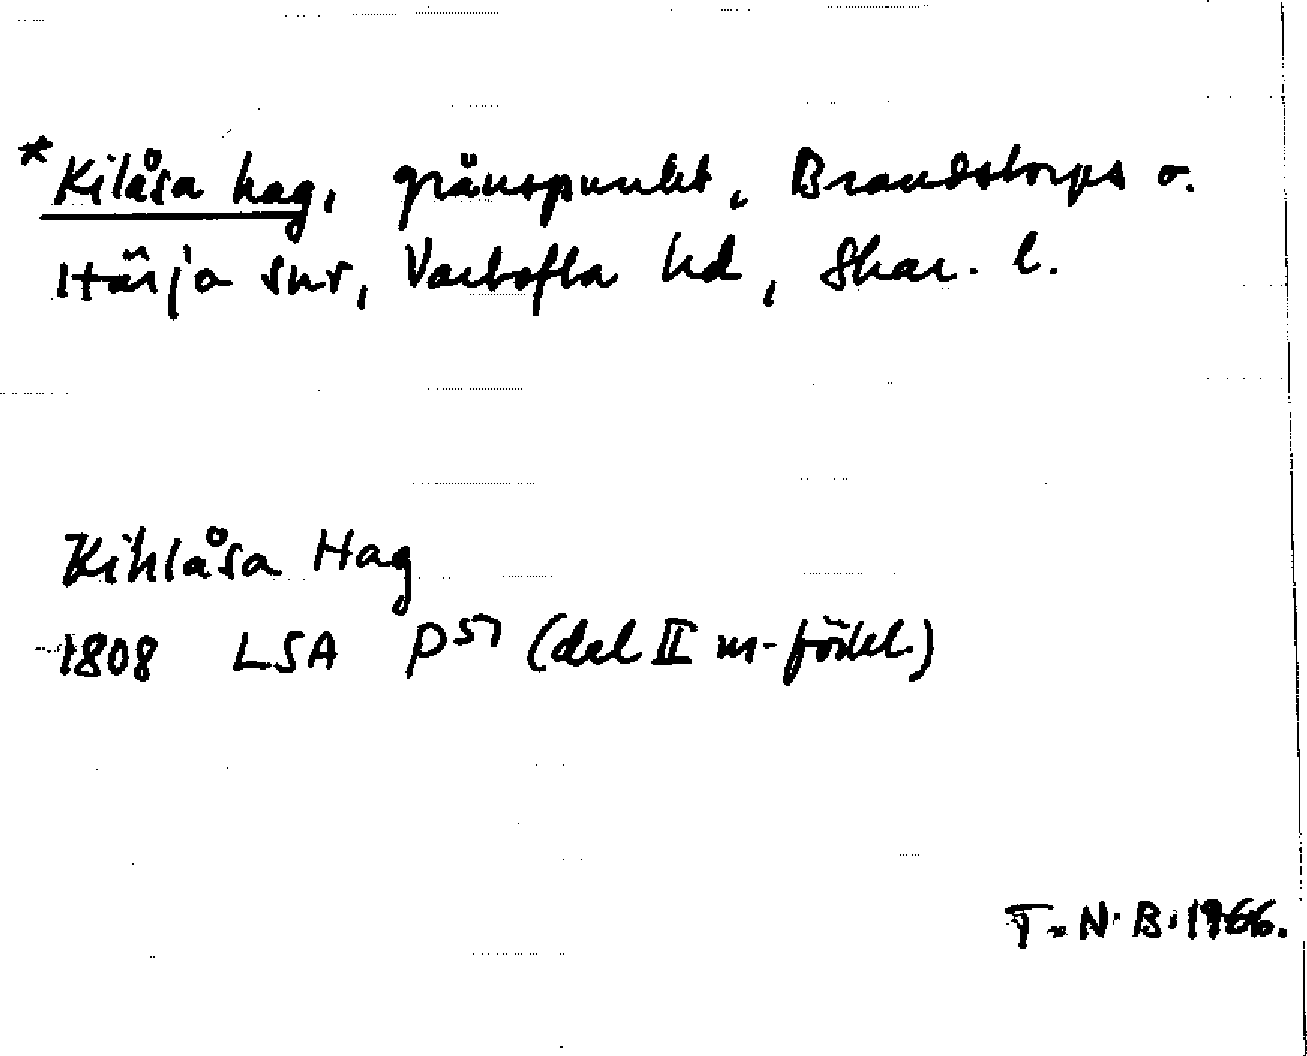 *Kilåsa hag, gränspunkt, Brandstorps o.
Härja snr, Vartofta hd, Skar. l.
Kihlåsa Hag
1808 LSA P57 (del II m-förkl.)
T.N.B.1966.